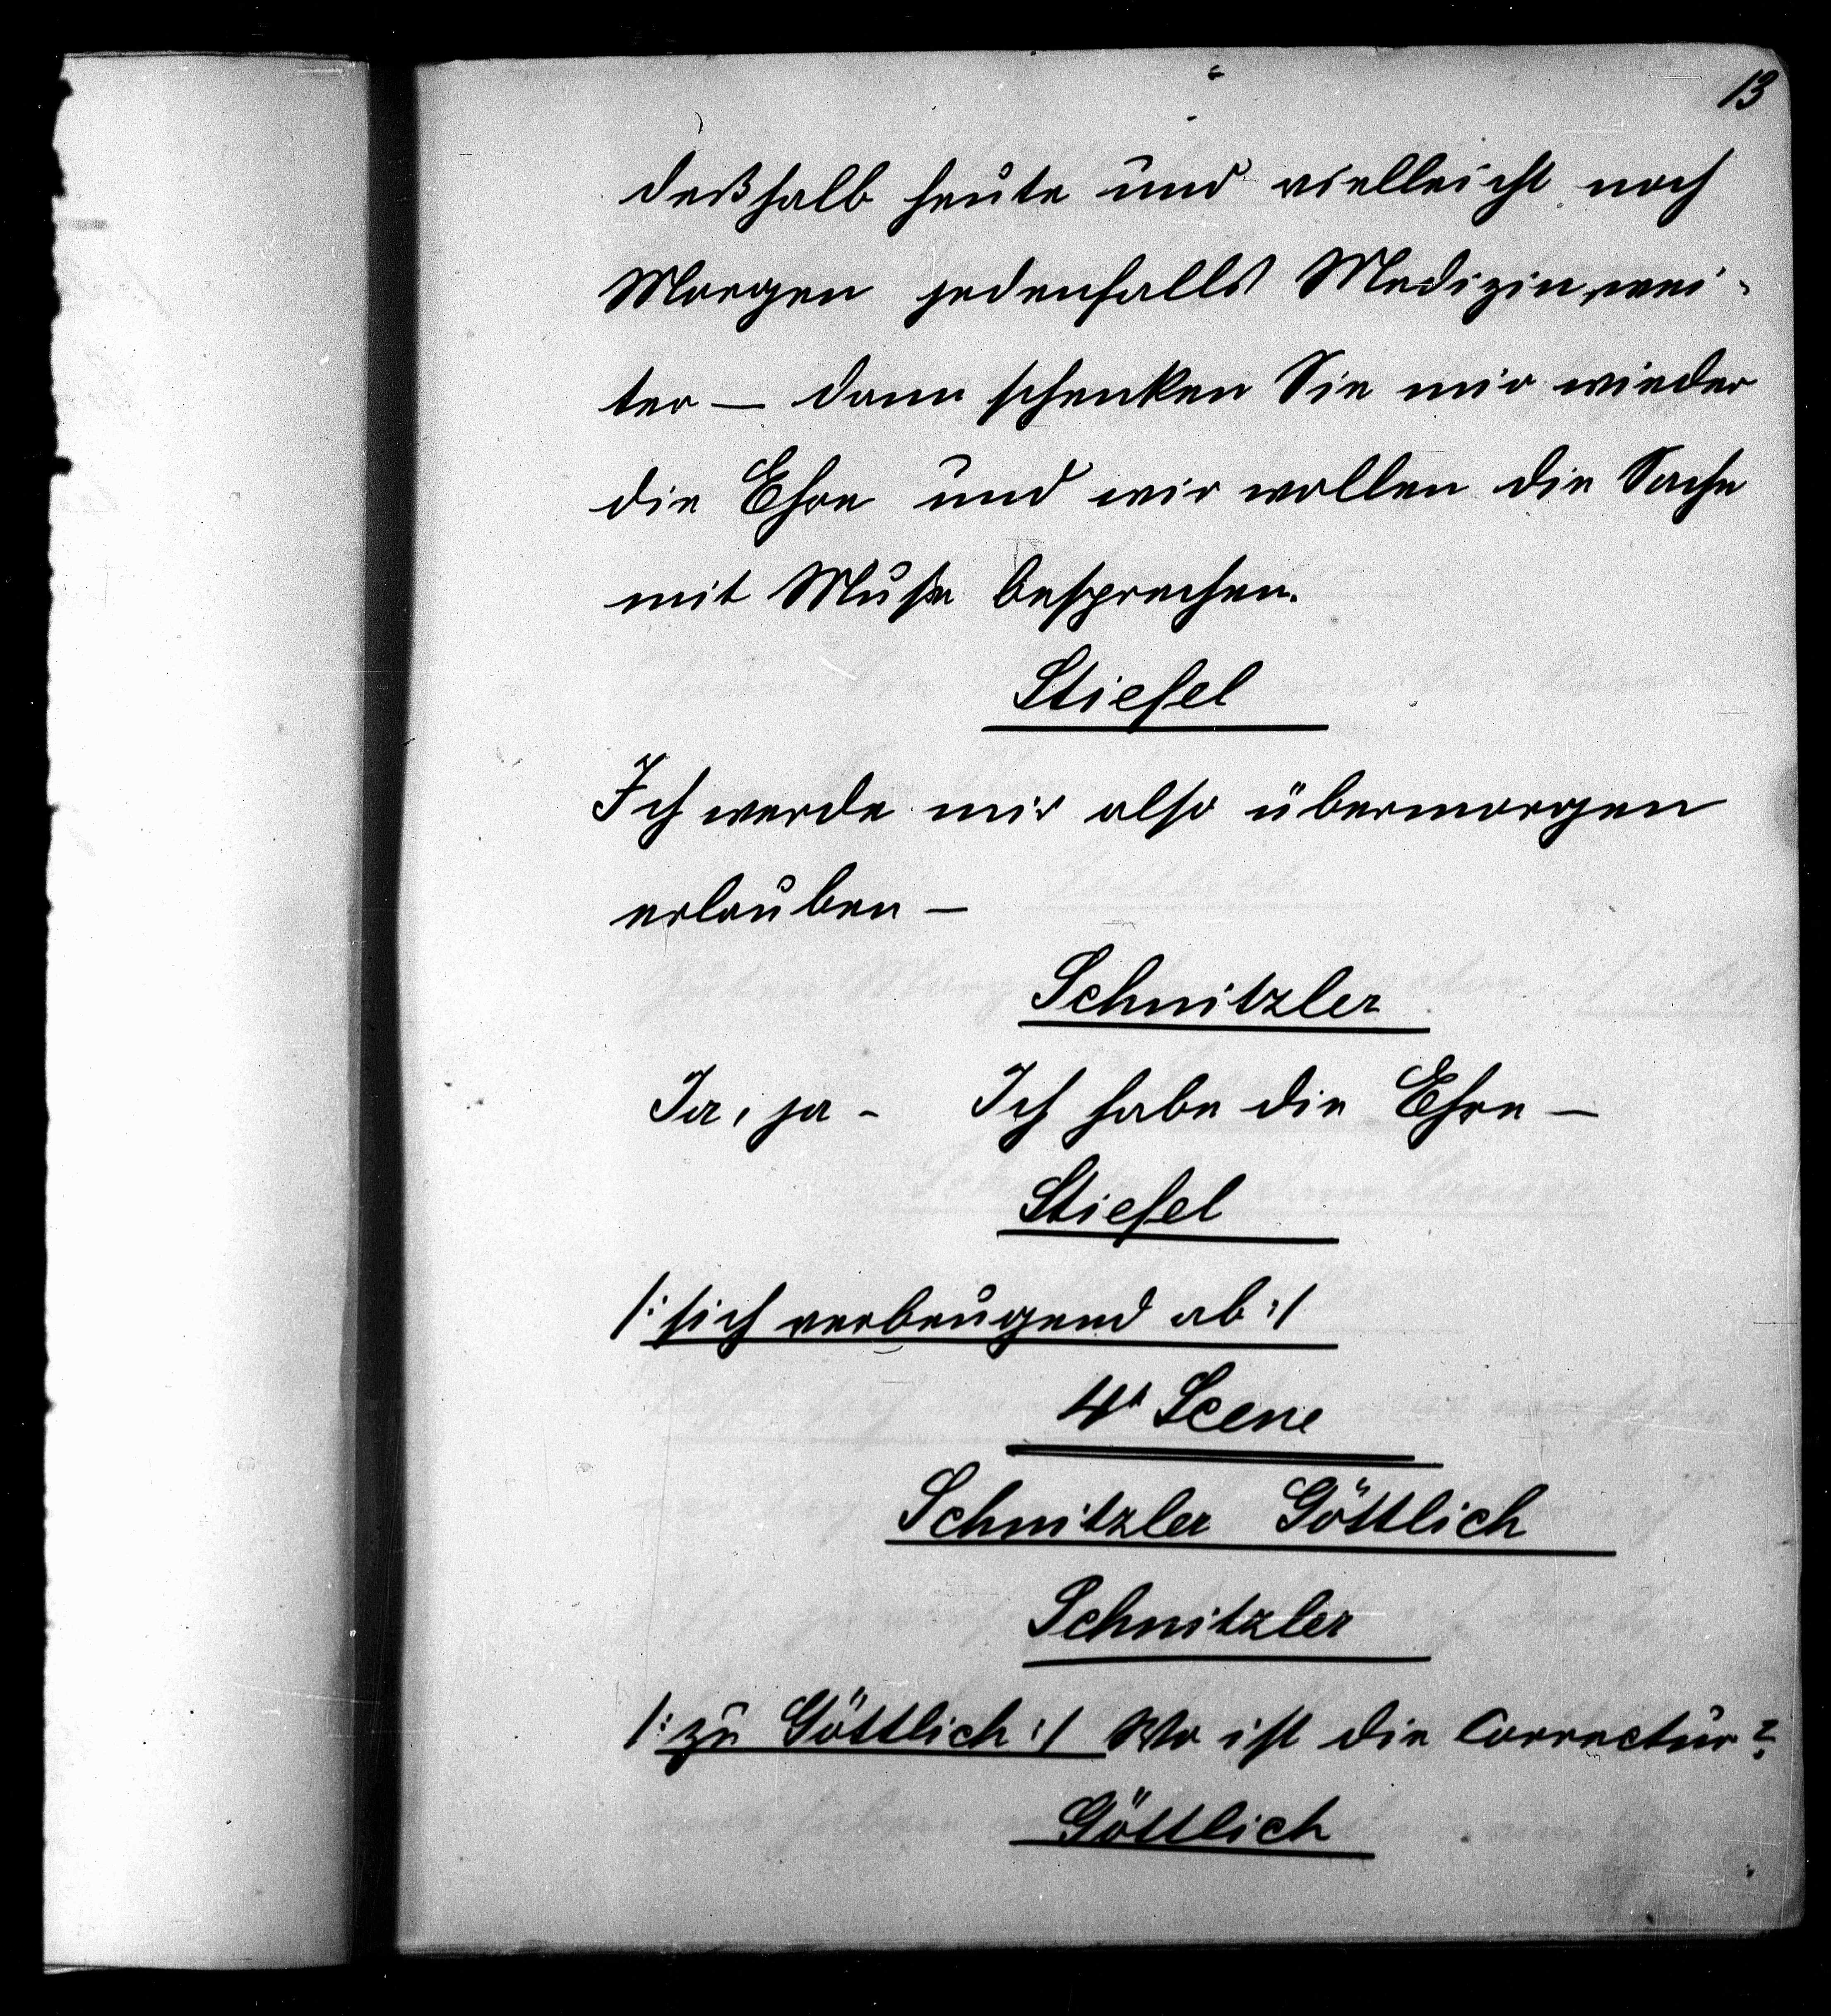 13
deßhalb heute und vielleicht noch
Morgen jedenfalls Medizin wei-
ter — dann schenken Sie mir wieder
die Ehre und wir wollen die Sache
mit Muße besprechen.
Stiefel
Ich werde mir also übermorgen
erlauben —
Schnitzler
Ja, ja – Ich habe die Ehre —
Stiefel
/: sich verbeugend ab :/
4t Scene
Schnitzler Göttlich
Schnitzler
/: zu Göttlich :/ Wo ist die Correctur?
Göttlich